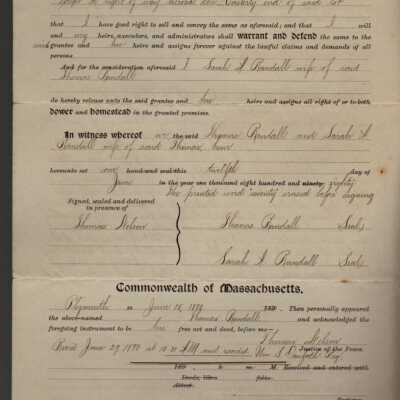 that I have good right to sell and convey the same as aforesaid; and that I will
and my heirs, executors, and administrators shall warrant and defend the same to the
said grantee and her heirs and assigns forever against the lawful claims and demands of all
persons.
And for the consideration aforesaid I Sarah A Randall wife of said
Thomas Randall
do hereby release unto the said grantee and her heirs and assigns all right of or to both
dower and homestead in the granted premises.
In witness whereof we the said Thomas Randall and Sarah A
Randall wife of said Thomas have
hereunto set our hand and seal this twelfth day of
June in the year one thousand eight hundred and ninety eighty
The printed word ninety erased before signing
Signed, sealed and delivered
in presence of
Thomas Nelson
Thomas Randall Seal
Sarah A Randall Seal
Commonwealth of Massachusetts.
Plymouth ss June 189 . Then personally appeared
the above-named Thomas Randall and acknowledged the
foregoing instrument to be his free act and deed, before me
Thomas Nelson
Justice of the Peace.
Recd June 29 1880 at 10 AM and record Wm S Danforth Reg
189 , h m M. Received and entered with